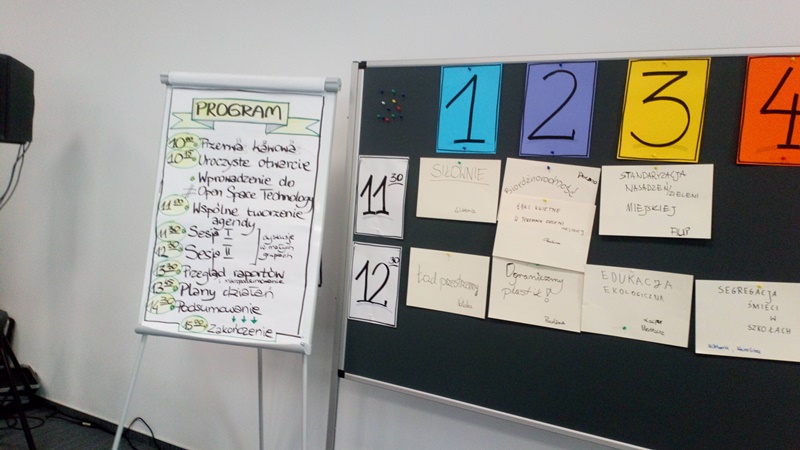 PROGRAM
10⁰⁰ Przerwa kawowa
10¹⁵ Uroczyste otwarcie
Wprowadzenie do
Open Space Technology
11⁰⁰ Wspólne tworzenie
agendy
11³⁰ Sesja I
12³⁰ Sesja II
dyskusje
w małych
grupach
13³⁰ Przegląd raportów
Plany działań
14³⁰ Podsumowanie
15⁰⁰ Zakończenie
1
2
3
4
11³⁰
SIŁOWNIE
Bioróżnorodność
ŁĄKI KWIETNE
STANDARYZACJA
NASADZEŃ ZIELENI
MIEJSKIEJ
FILIP
12³⁰
Ład przestrzenny
Ograniczmy
plastik
EDUKACJA
EKOLOGICZNA
SEGREGACJA
ŚMIECI
W
SZKOŁACH